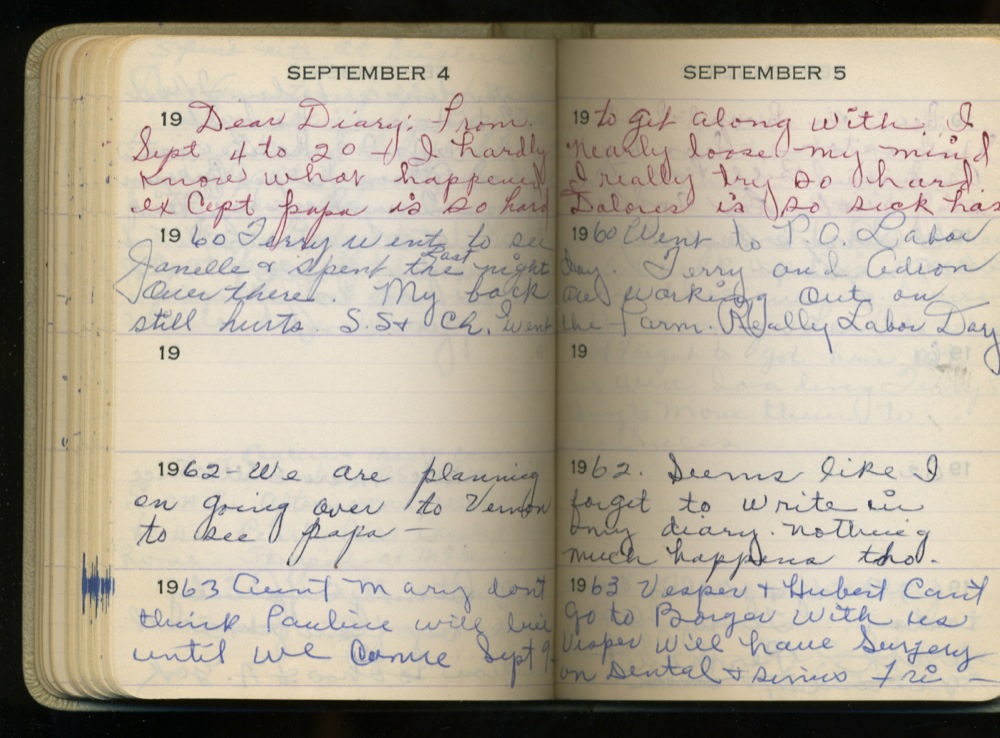 SEPTEMBER 4
19 Dear Diary: From
Sept 4 to 20 - I hardly
know what happened
ex Cept papa is so hard
1960 Terry went to see
Janelle & spent the last night
over there. My back
still hurts. S.S & Ch. went
19
1962 - We are planning
on going over to Vernon
to see papa -
1963 Aunt Mary dont
think Pauline will live
until we come Sept 9-
SEPTEMBER 5
19 to get along with. I
nearly loose my mind
I really try so hard.
Dalores is so sick has
1960 Went to P.O. Labor
Day. Terry and
are working out on
the Farm. Really Labor Day
19
1962. Seems like I
forget to write in
my diary. nothing
much happens tho.
1963 Vesper & Hubert Can't
go to Borger with us
Vesper will have Surgery
on Dental & sinus Fri -